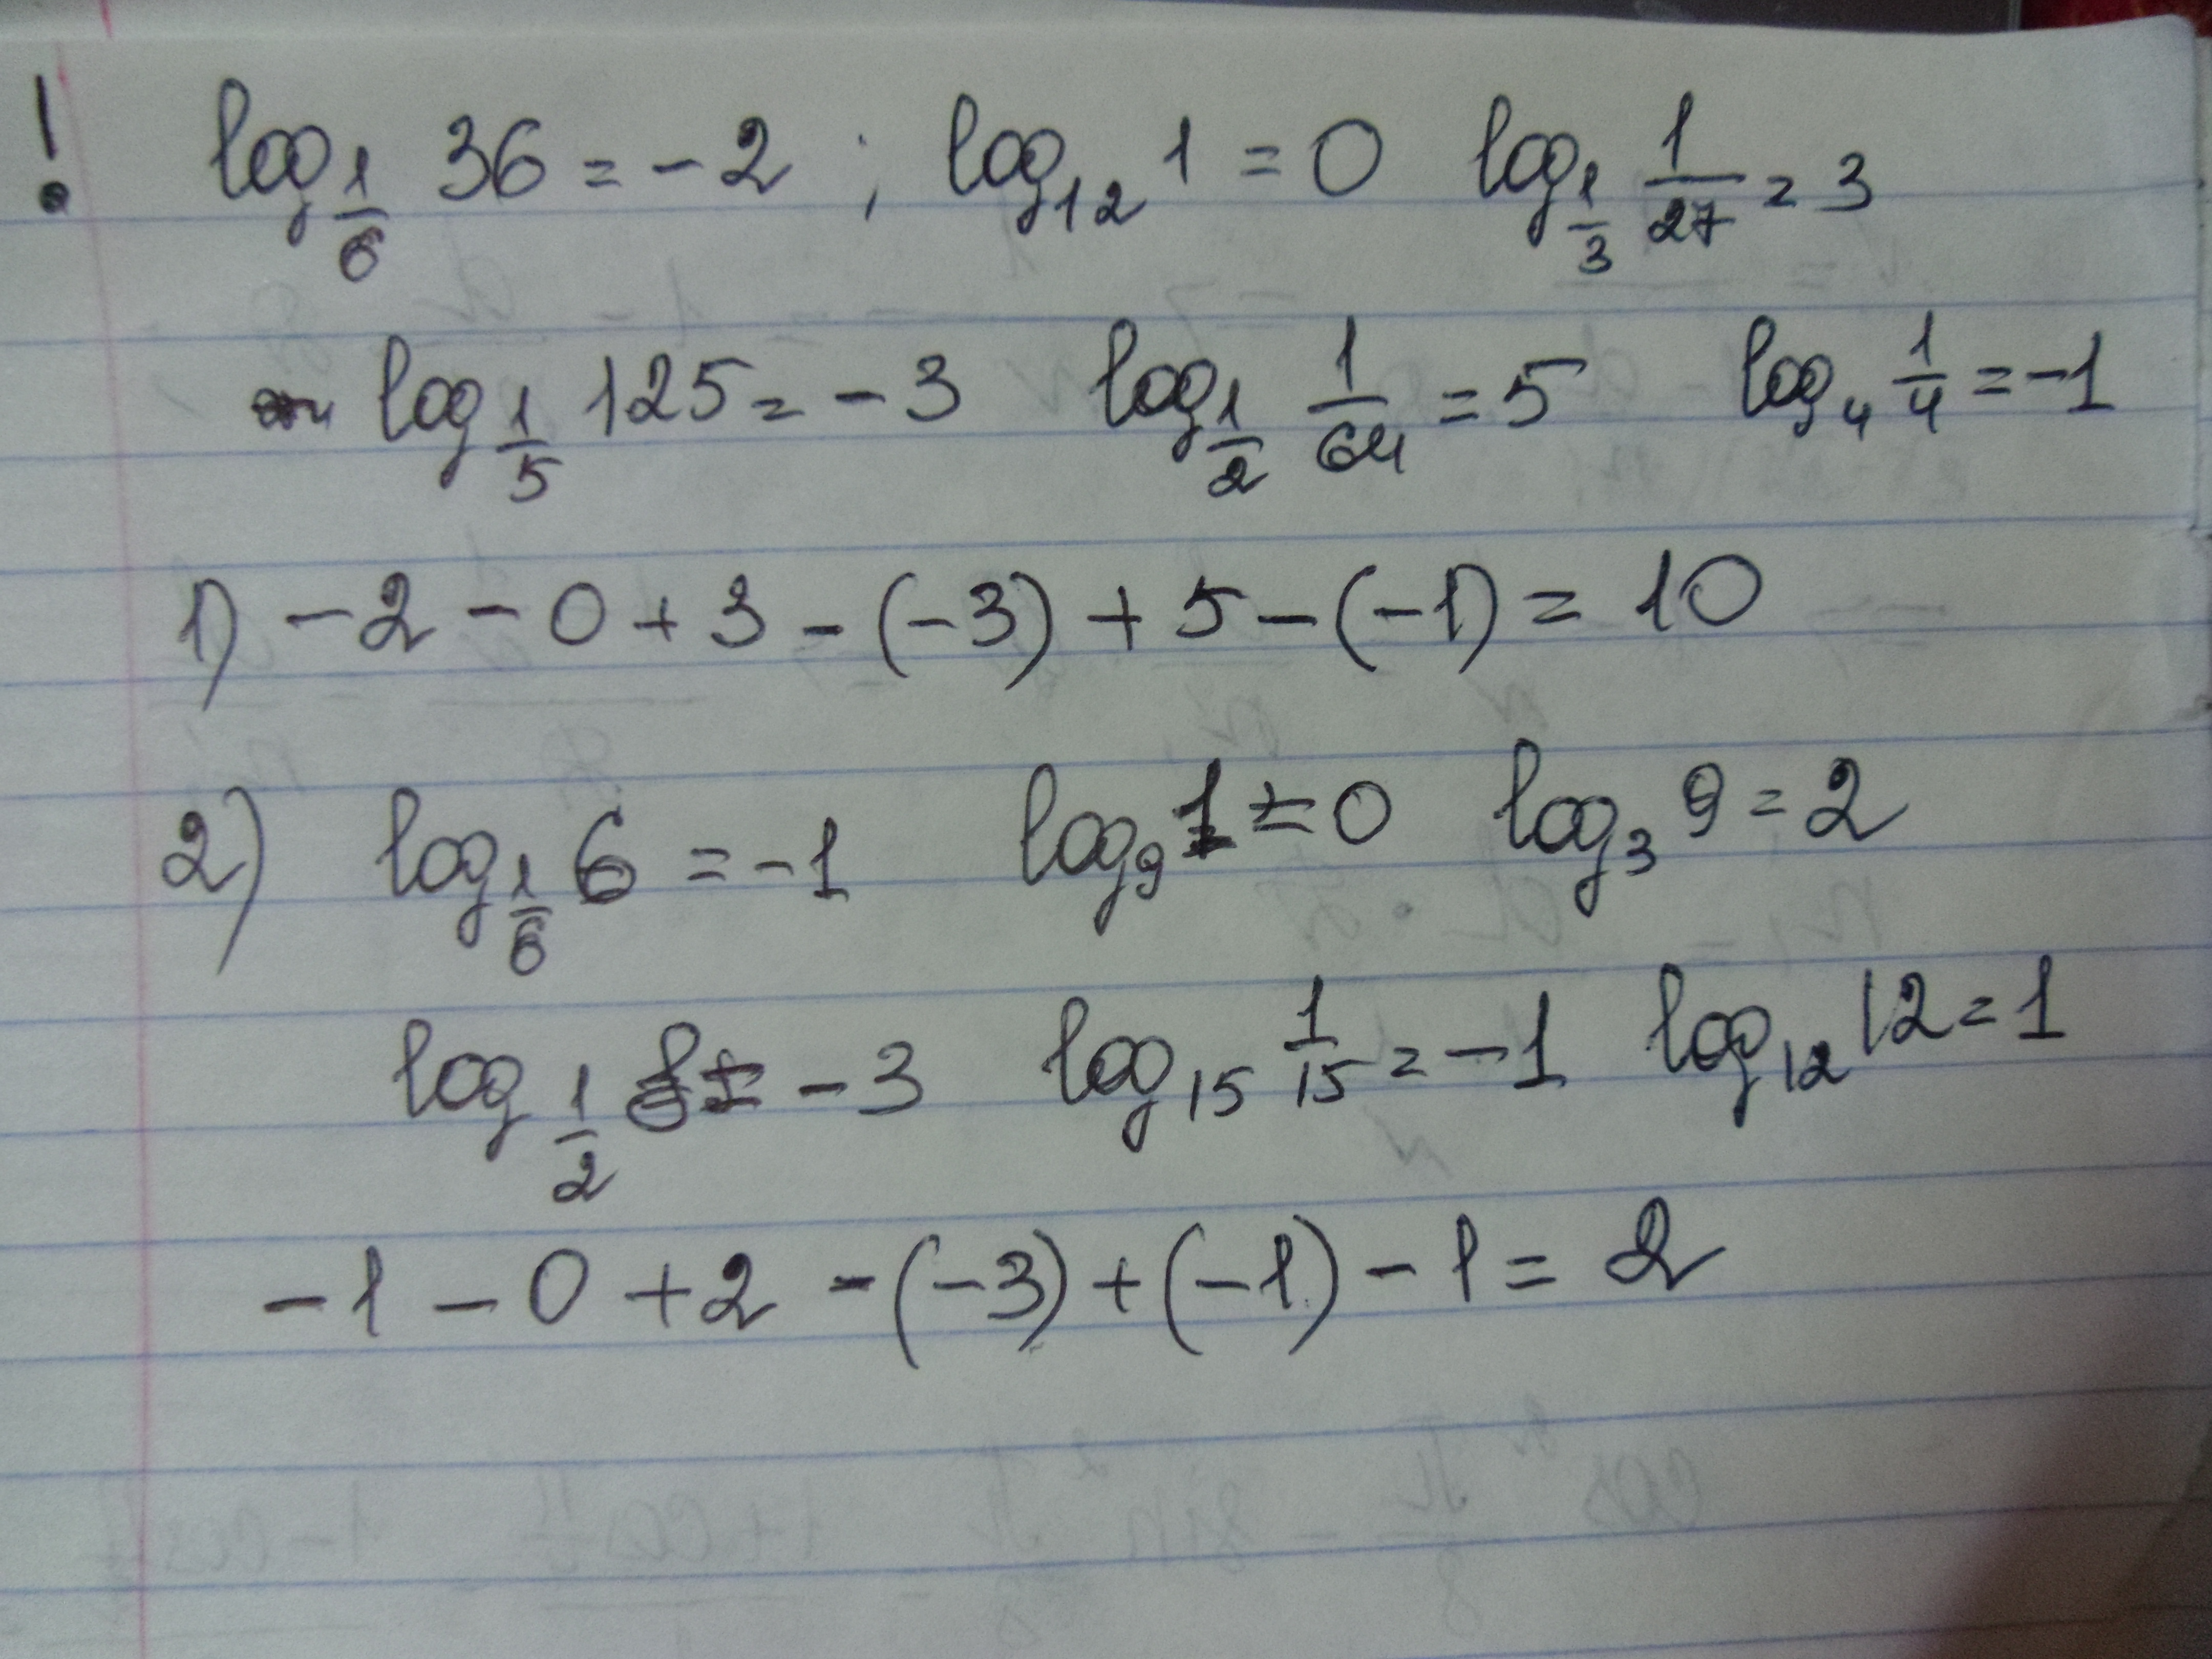 ! log_{1/6} 36 = -2 ; log_{12} 1 = 0 log_{1/3} 1/27 = 3
log_{1/5} 125 = -3 log_{1/2} 1/64 = 5 log_4 1/4 = -1
1) -2 - 0 + 3 - (-3) + 5 - (-1) = 10
2) log_{1/6} 6 = -1 log_9 1 = 0 log_3 9 = 2
log_{1/2} 8 = -3 log_{15} 1/15 = -1 log_{12} 12 = 1
-1 - 0 + 2 - (-3) + (-1) - 1 = 2